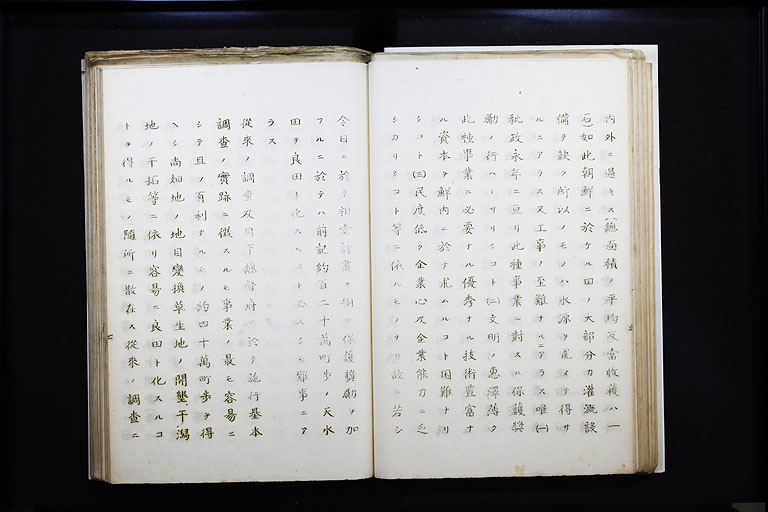 内外ニ過キス(總面積ノ平均反當收穫ハ一
石)如此朝鮮ニ於ケル田ノ大部分カ灌漑設
備ヲ缺ク所以ノモノハ水源ヲ求メテ得サ
ルニアラス又工事ノ至難ナルニアラス唯(一)
秕政永年ニ亘リ此種事業ニ對スル保護奬
勵ノ行ハレサリシコト(二)文明ノ惠澤薄ク
此種事業ニ必要ナル優秀ナル技術豊富ナ
ル資本ヲ鮮内ニ於テ求ムルコト困難ナリ
シコト(三)民度低ク企業心及企業能力ニ乏
シカリシコト等ニ依ルモノナリ故ニ若シ
今日ニ於テ相當計畫ヲ樹テ保護奬勵ヲ加
フルニ於テハ前記約百二十萬町歩ノ天水
田ヲ良田ト化スルコト必スシモ難事ニア
ラス
從來ノ調査及目下總督府ニ於テ施行基本
調査ノ實跡ニ徴スルモ事業ノ最モ容易ニ
シテ且ノ有利ナルモノ約四十萬町歩ヲ得
ヘシ尚畑地ノ地目變換草生地ノ開墾干潟
地ノ干拓等ニ依リ容易ニ良田ト化スルコ
トヲ得ルモノ隨所ニ散在ス從來ノ調査ニ